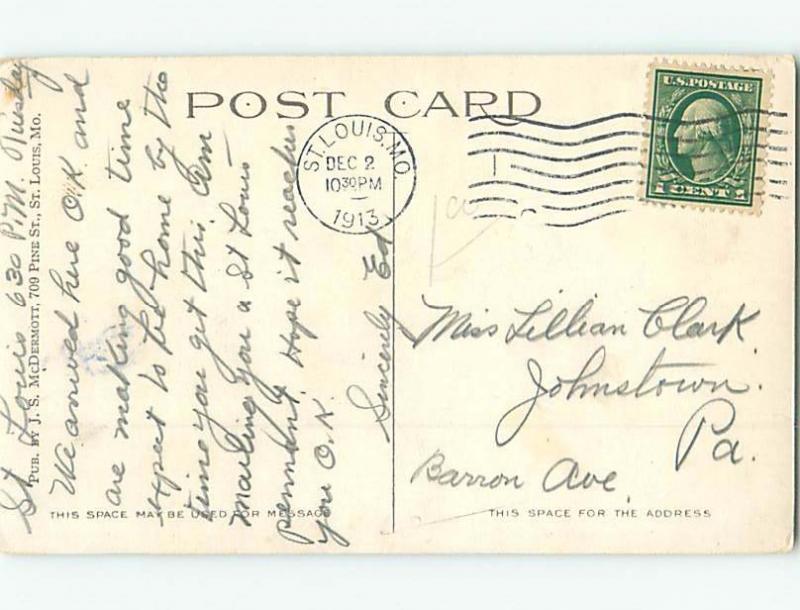 POST CARD
U.S. POSTAGE
1 CENT 1
ST. LOUIS, MO.
DEC 2
10 30 PM
1913
St Louis 6 30 P.M. Tuesday
We arrived here O.K. and
are making good time
expect to be home by the
time you get this. Am
mailing you a St Louis
pennant. Hope it reaches
you O.K.
Sincerely Ed
PUB. BY J. S. McDERMOTT, 709 PINE ST., ST. LOUIS, MO.
Miss Lillian Clark
Johnstown.
Pa.
Barron Ave.
THIS SPACE MAY BE USED FOR MESSAGE
THIS SPACE FOR THE ADDRESS